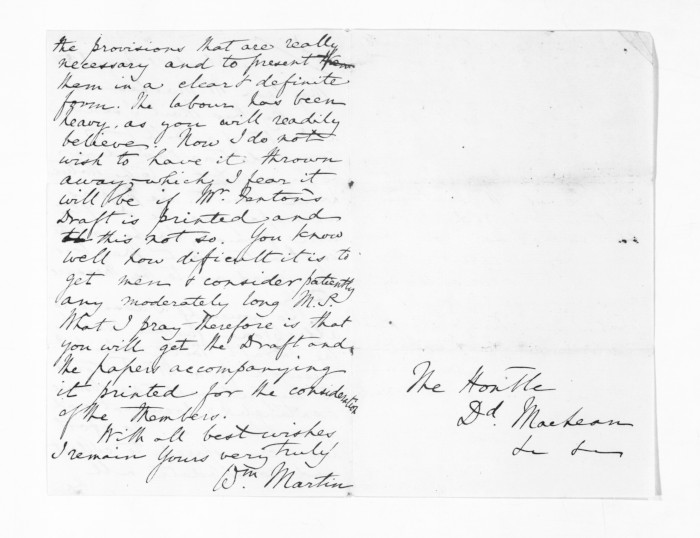 the provisions that are really
necessary and to present them
them in a clear & definite
form. The labour has been
heavy, as you will readily
believe. Now I do not
wish to have it thrown
away, which I fear it
will be if Mr. Fenton's
Draft is printed and
this not so. You know
well how difficult it is to
get men to consider patiently
any moderately long M.S.
What I pray therefore is that
you will get the Draft and
the papers accompanying
it printed for the consideration
of the Members.
With all best wishes
I remain Yours very truly
Wm. Martin
The Honble
Dd. Maclean
&c &c